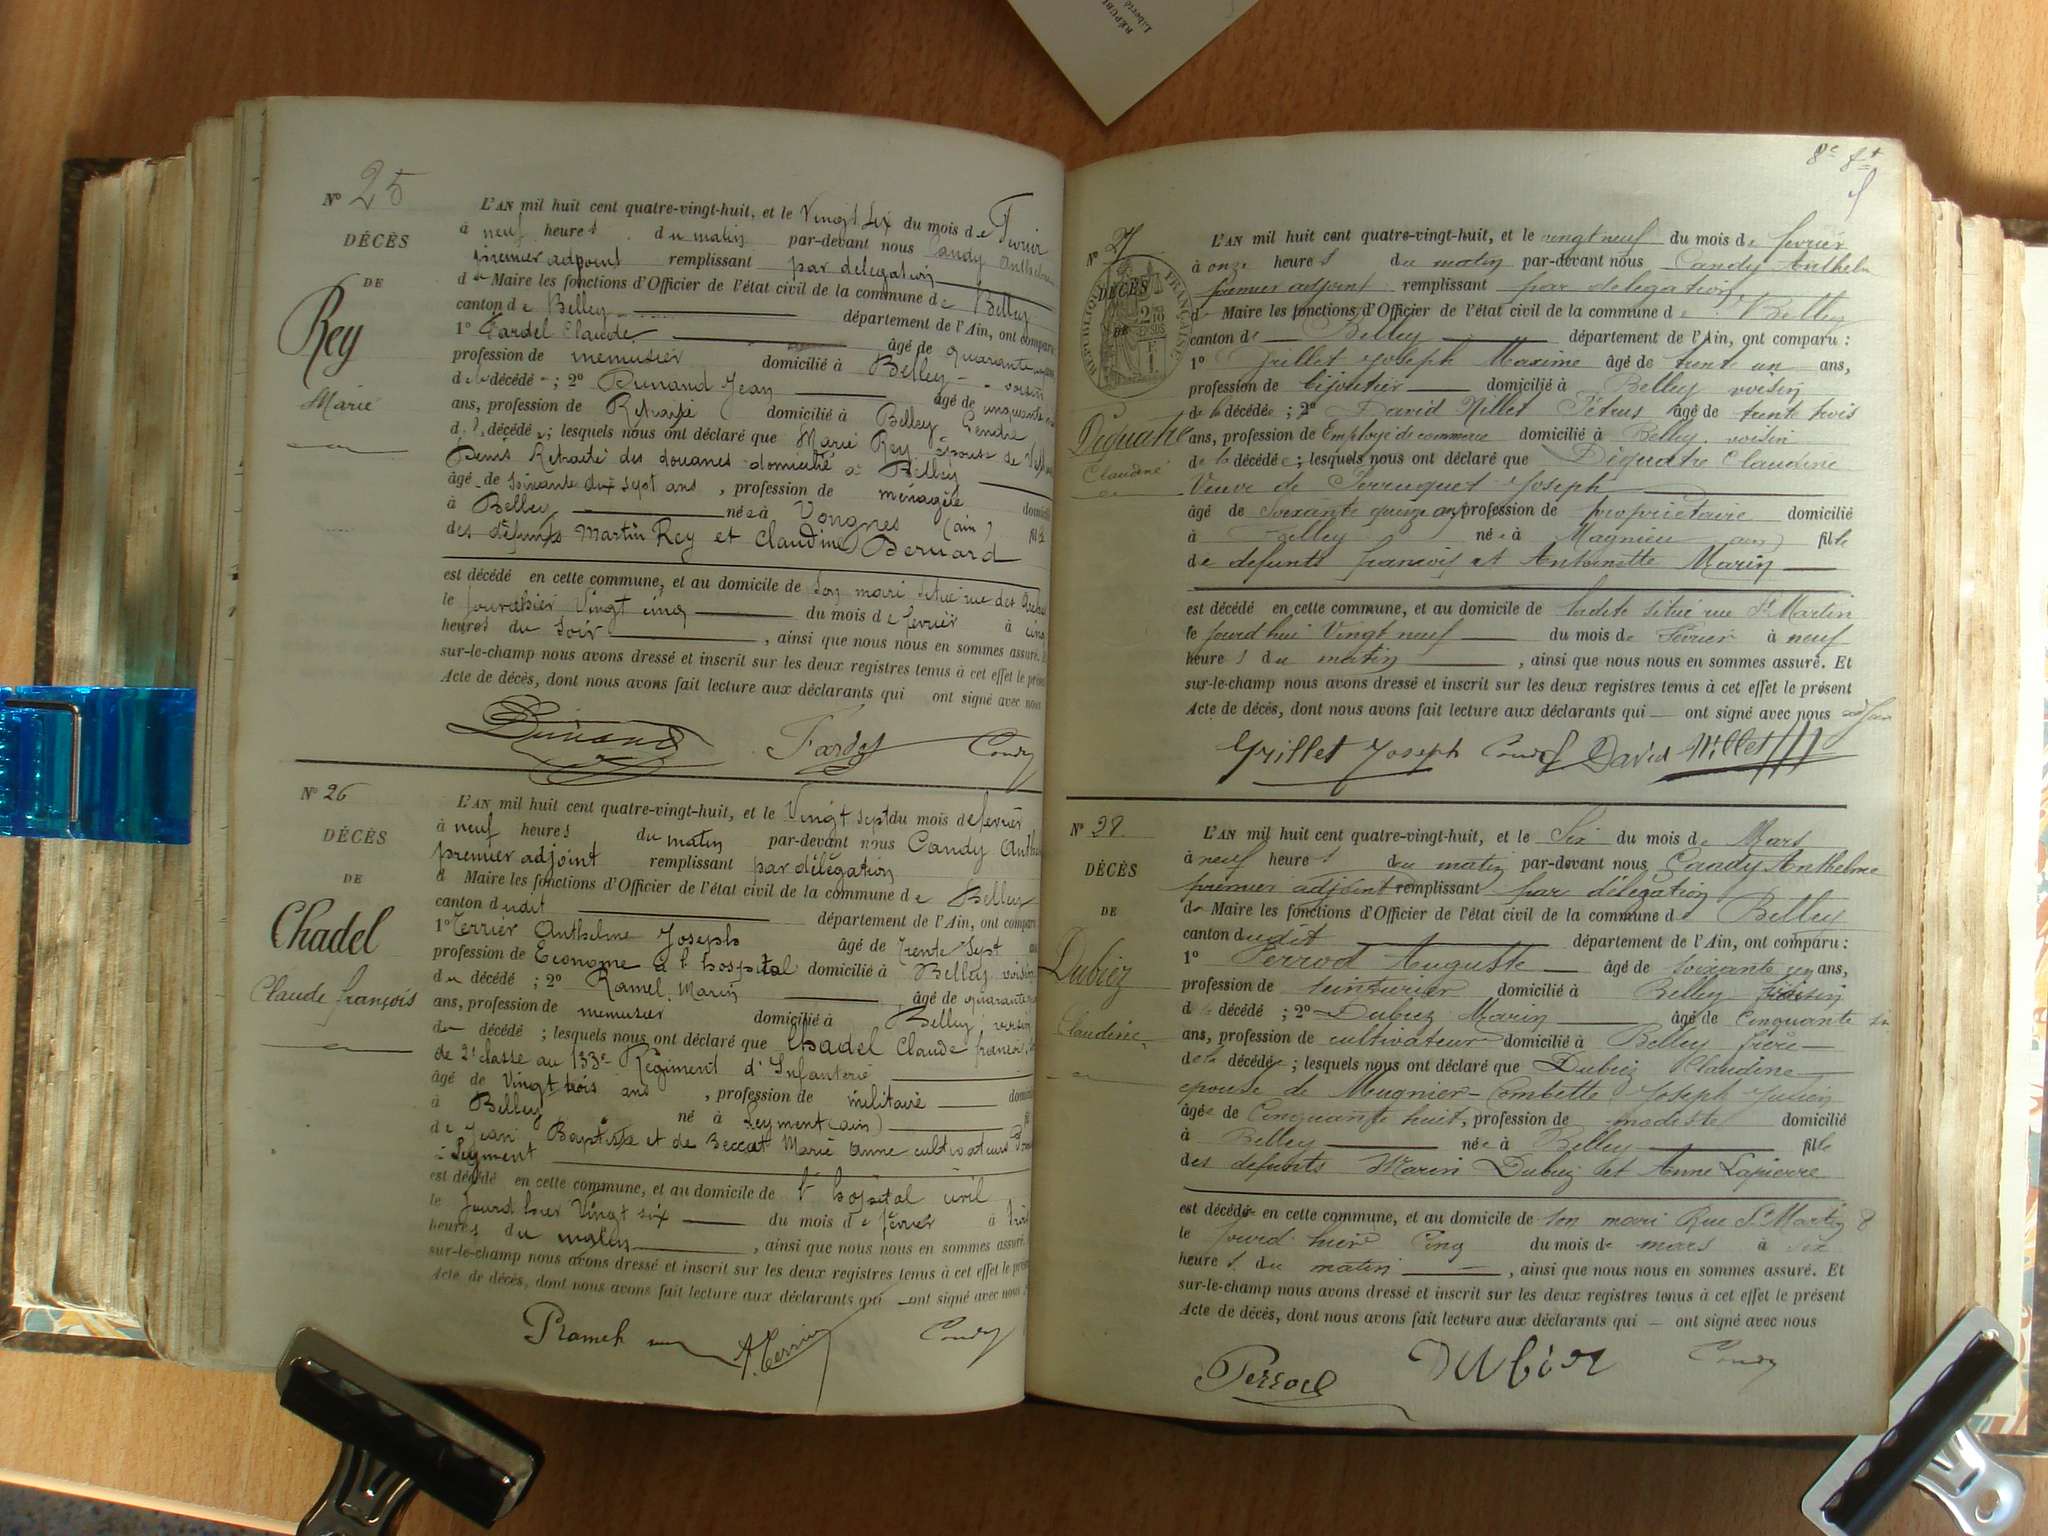 RÉPUBL
Liberté
Nº 25
DÉCÈS
DE
Rey
Marie
L'AN mil huit cent quatre-vingt-huit, et le Vingt six du mois de Fevrier
à neuf heures du matin par-devant nous Candy Anthelme
premier adjoint remplissant par délégation
du Maire les fonctions d'Officier de l'état civil de la commune de Belley
canton de Belley département de l'Ain, ont comparu
1º Fardel Claude âgé de quarante
profession de menusier domicilié à Belley voisin
de la décédée ; 2º Dunand Jean âgé de cinquante
ans, profession de Retraité domicilié à Belley Gendre
d décédé ; lesquels nous ont déclaré que Marie Rey épouse de
Denis Retraité des douanes domicilié à Belley
âgé de soixante dix sept ans , profession de ménagère domicil
à Belley née à Vongnes (ain) fille
des défunts Martin Rey et Claudine Bernard
est décédé en cette commune, et au domicile de son mari situé rue des
le jourd'hier Vingt cinq du mois de fevrier à cinq
heures du soir , ainsi que nous nous en sommes assuré.
sur-le-champ nous avons dressé et inscrit sur les deux registres tenus à cet effet le présent
Acte de décès, dont nous avons fait lecture aux déclarants qui ont signé avec nous
Dunand Fardel Candy
Nº 26
DÉCÈS
DE
Chadel
Claude françois
L'AN mil huit cent quatre-vingt-huit, et le Vingt sept du mois de fevrier
à neuf heures du matin par-devant nous Candy Anthe
premier adjoint remplissant par délégation
d Maire les fonctions d'Officier de l'état civil de la commune de Belley
canton dudit département de l'Ain, ont comparu
1º Terrier Anthelme Joseph âgé de trente sept an
profession de Econome à l'hospital domicilié à Belley voisin
du décédé ; 2º Ramel Marin âgé de quarante
ans, profession de menusier domicilié à Belley voisin
du décédé ; lesquels nous ont déclaré que Chadel Claude francois
de 2e classe au 133e Régiment d'Infanterie
âgé de Vingt trois ans , profession de militaire domicil
à Belley né à Leyment (ain)
de Jean Baptiste et de Beccat Marie Anne cultivateurs
à Leyment
est décédé en cette commune, et au domicile de l'hospital civil
le jourd'hier Vingt six du mois de février à
heures du matin , ainsi que nous nous en sommes assuré.
sur-le-champ nous avons dressé et inscrit sur les deux registres tenus à cet effet le présen
Acte de décès, dont nous avons fait lecture aux déclarants qui ont signé avec nous
Ramel A. Terrier Candy
8e
Nº 27
RÉPUBLIQUE FRANÇAISE
DÉCÈS
DE
Diguatre
Claudine
L'AN mil huit cent quatre-vingt-huit, et le vingt neuf du mois de fevrier
à onze heures du matin par-devant nous Candy Anthelm
premier adjoint remplissant par délégation
du Maire les fonctions d'Officier de l'état civil de la commune de Belley
canton de Belley département de l'Ain, ont comparu :
1º Grillet Joseph Maxime âgé de trente un ans,
profession de bijoutier domicilié à Belley voisin
de la décédée ; 2º David Nillet Pétrus âgé de trente trois
ans, profession de Employé de commerce domicilié à Belley voisin
de la décédée ; lesquels nous ont déclaré que Diguatre Claudine
Veuve de Joseph
âgé de soixante quinze ans profession de propriétaire domicilié
à Belley née à Magnieu (ain) fille
de defunts françois et Antoinette Marin
est décédé en cette commune, et au domicile de ladite situé rue St Martin
le jourd'hui Vingt neuf du mois de février à neuf
heures du matin , ainsi que nous nous en sommes assuré. Et
sur-le-champ nous avons dressé et inscrit sur les deux registres tenus à cet effet le présent
Acte de décès, dont nous avons fait lecture aux déclarants qui ont signé avec nous
Grillet Joseph Candy David Nillet
Nº 28.
DÉCÈS
DE
Dubiez
Claudine
L'AN mil huit cent quatre-vingt-huit, et le Six du mois de Mars
à neuf heures du matin par-devant nous Candy Anthelme
premier adjoint remplissant par délégation
du Maire les fonctions d'Officier de l'état civil de la commune de Belley
canton dudit département de l'Ain, ont comparu :
1º Perrod Auguste âgé de soixante un ans,
profession de teinturier domicilié à Belley voisin
de la décédé ; 2º Dubiez Marin âgé de cinquante six
ans, profession de cultivateur domicilié à Belley frère
de la décédée ; lesquels nous ont déclaré que Dubiez Claudine
epouse de Mugnier-Combette Joseph Julien
âgée de Cinquante huit, profession de modiste domicilié
à Belley née à Belley fille
des defunts Marin Dubiez et Anne Lapierre
est décédée en cette commune, et au domicile de son mari Rue St Martin 8
le jourd'hier Cinq du mois de mars à six
heures du matin , ainsi que nous nous en sommes assuré. Et
sur-le-champ nous avons dressé et inscrit sur les deux registres tenus à cet effet le présent
Acte de décès, dont nous avons fait lecture aux déclarants qui ont signé avec nous
Perrod Dubiez Candy